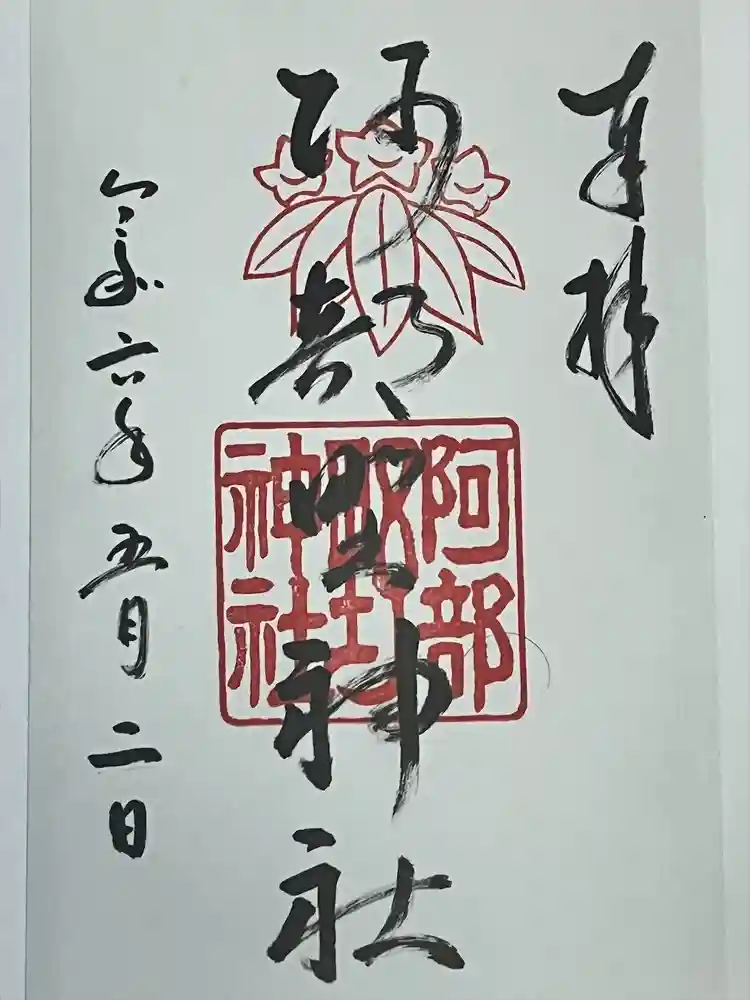 奉拝
阿部野神社
令和六年五月二日
阿部
野
神社